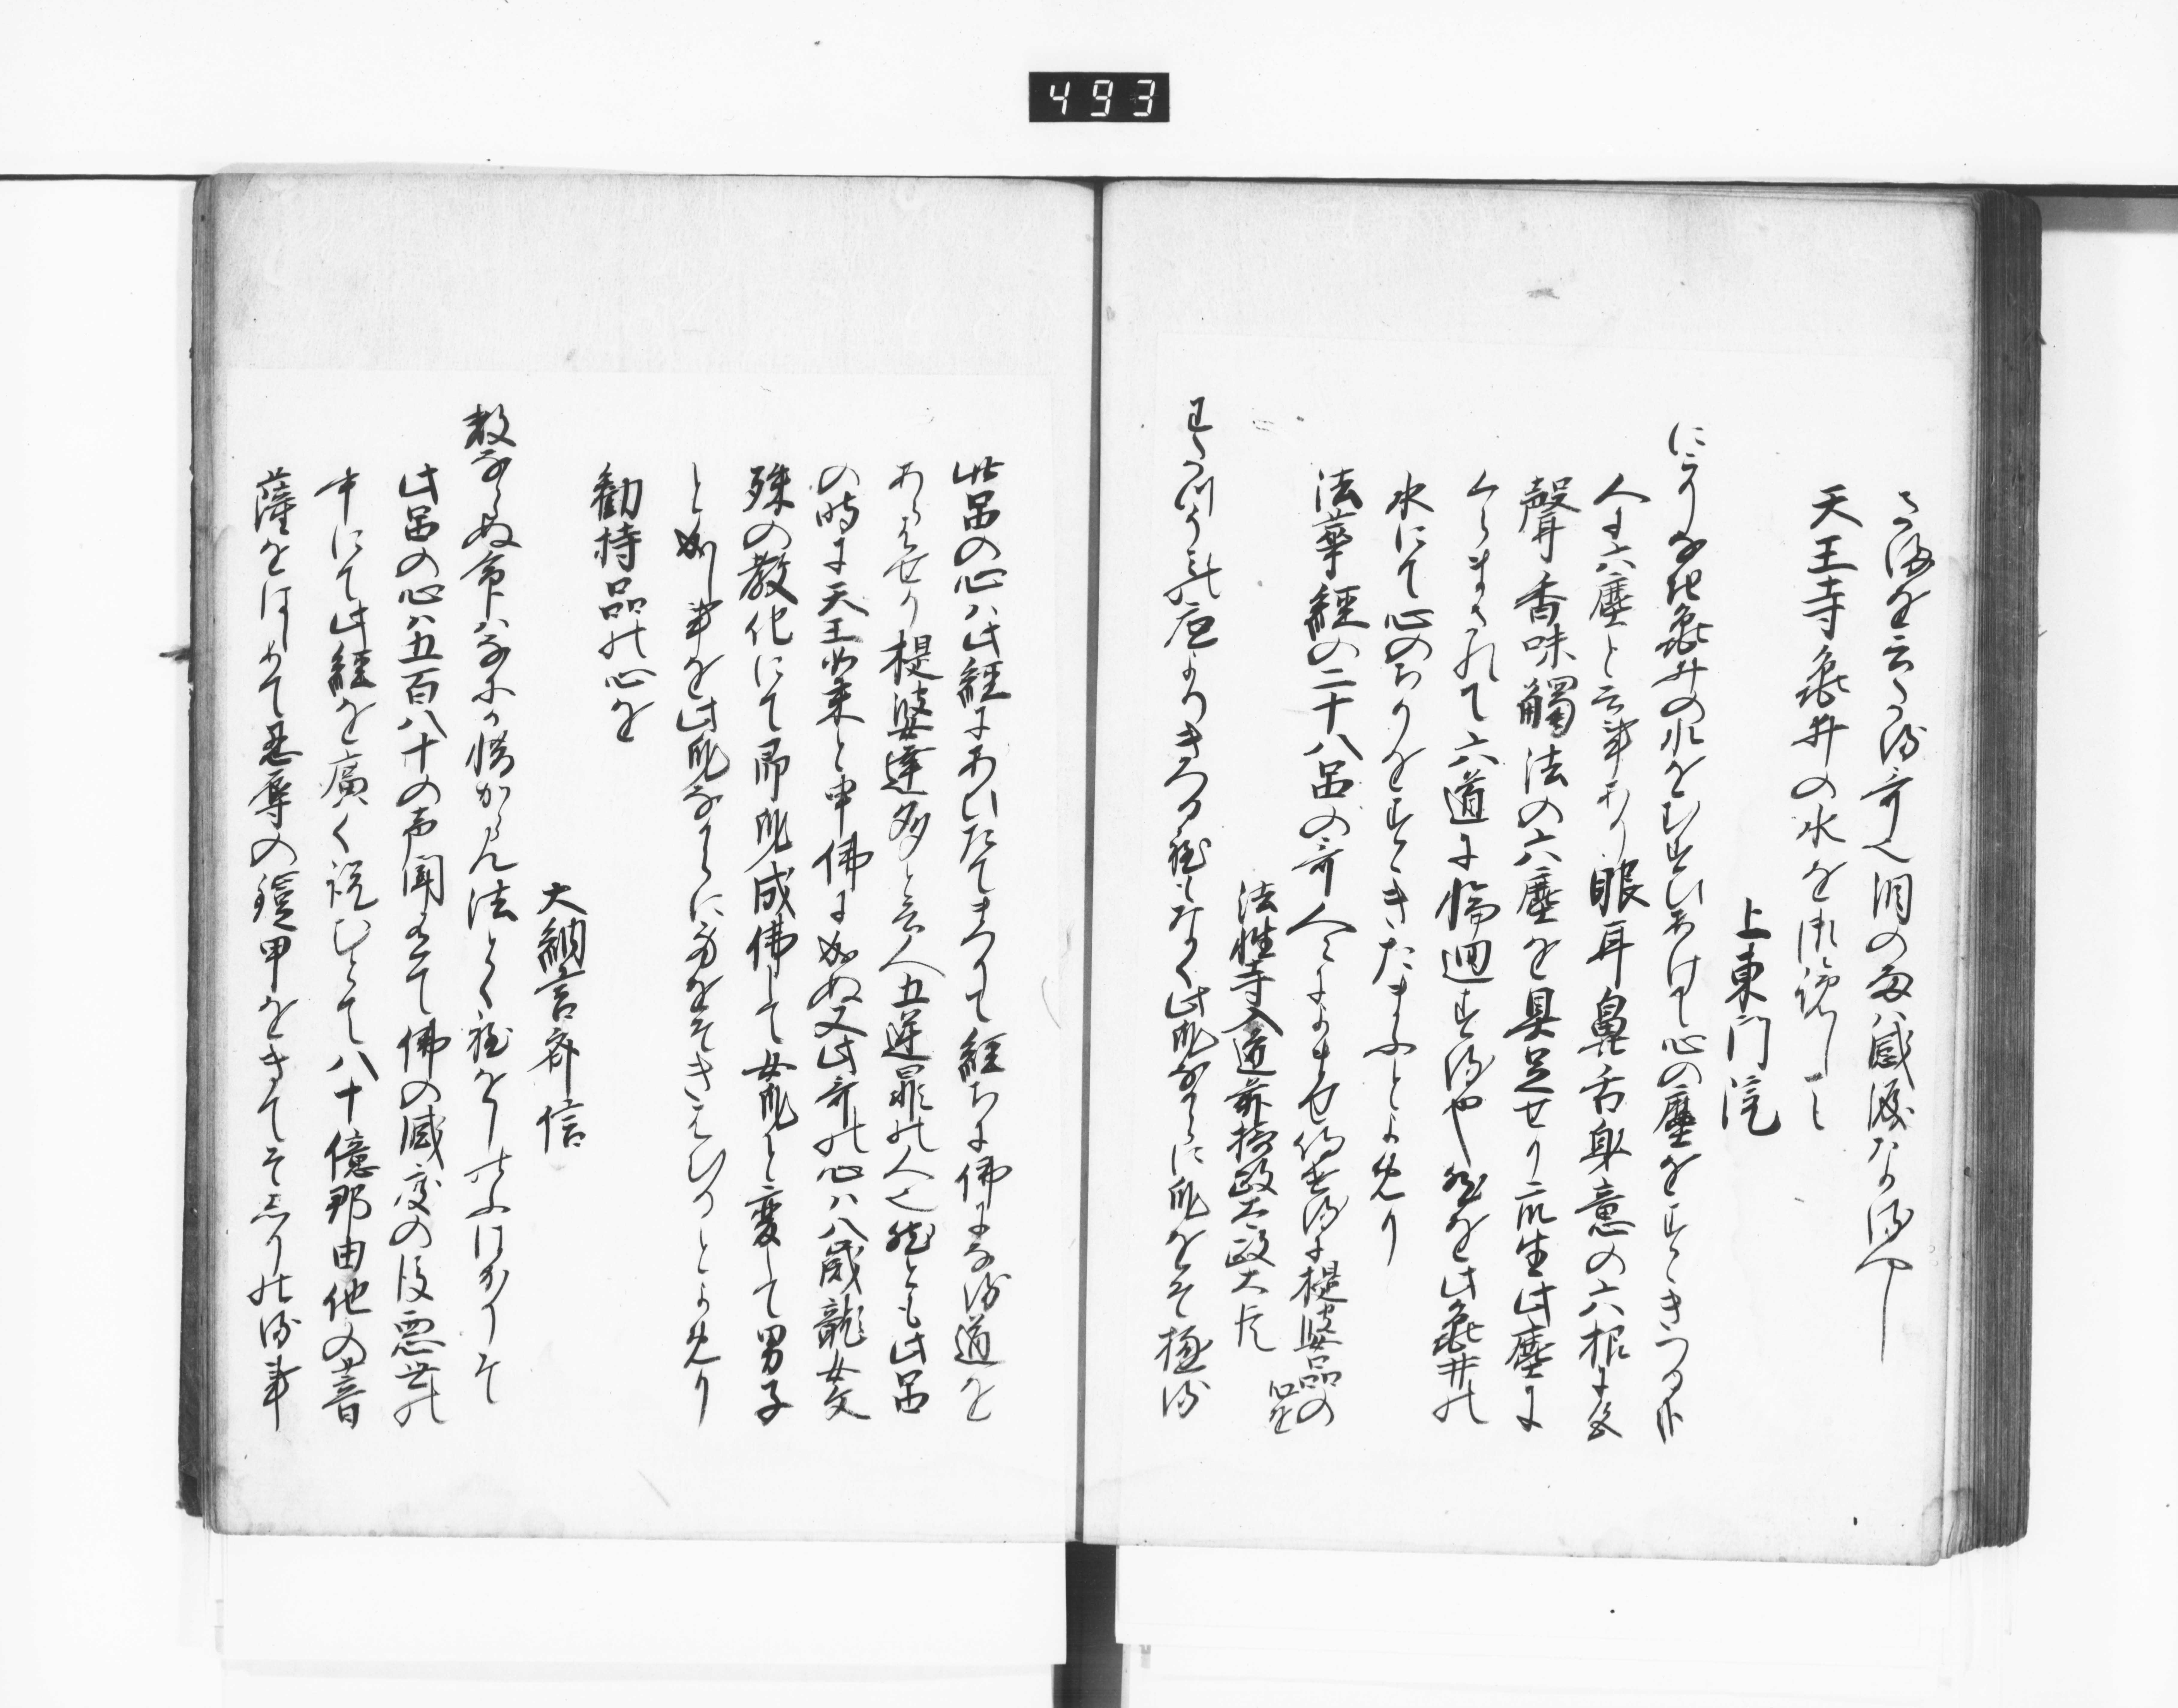 493
天王寺亀井の水を御覧して
上東門院
にこりなき亀井の水をむすひあけて心の塵をすゝきつる哉
人に六塵と云事あり眼耳鼻舌身意の六根に又
聲香味觸法の六塵を具足せり衆生此塵に
くらまされて六道に輪廻する也然を此亀井の
水にて心のちりをすゝきたまふとよめり
法華經の二十八品の哥人々によませ侍けるに提婆品の心を
法性寺入道前摂政太政大臣
わたつ海の底よりきつる程もなく此身なからに身をそ極る
此品の心は此經にあひたてまつりて經ちに佛になる道を
あらはせり提婆達多と云人五逆罪の人也然とも此品
の時に天王如来と申佛に成ぬ又此哥の心は八歳龍女文
殊の教化にて即身成佛して女身を変して男子
と成し事を此身なからに身をそきはむるとよめり
勧持品の心を
大納言齊信
数ならぬ命はなにか惜からん法とく程をしのふはかりそ
此品の心は五百八十の声聞ありて佛の滅度の後悪世の
中にて此經を廣く説むとて八十億那由他の菩
薩をはしめて忍辱の鎧甲をきてそしりの